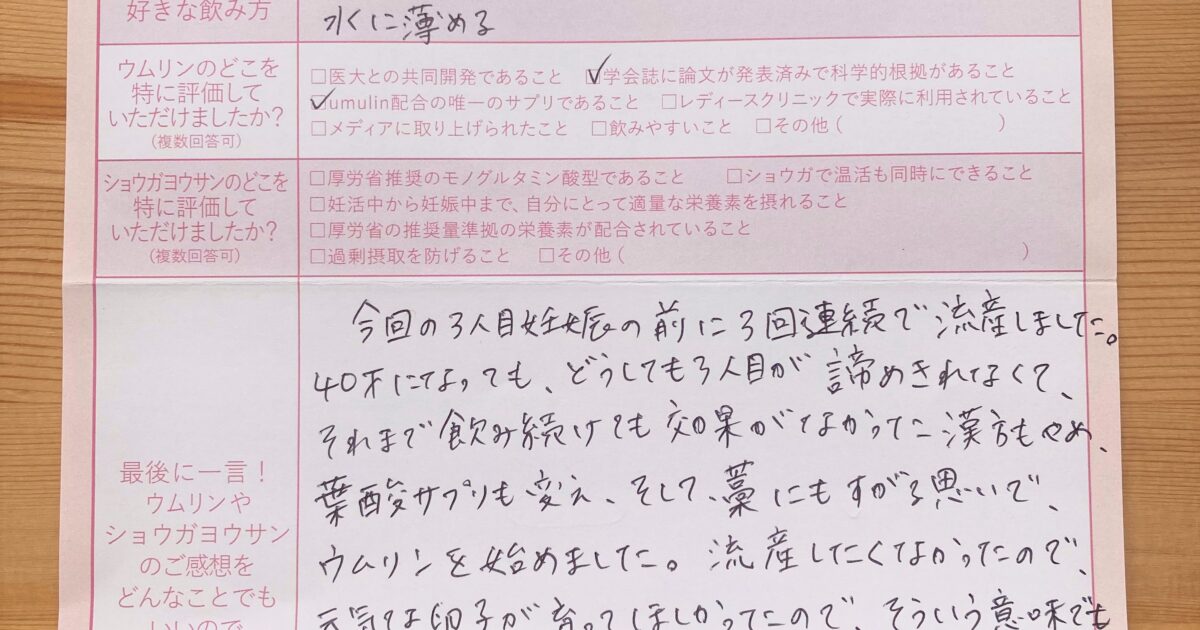 好きな飲み方
水くに薄める
ウムリンのどこを
特に評価して
いただけましたか？
(複数回答可)
□医大との共同開発であること ☑学会誌に論文が発表済みで科学的根拠があること
☑umulin配合の唯一のサプリであること □レディースクリニックで実際に利用されていること
□メディアに取り上げられたこと □飲みやすいこと □その他 ( )
ショウガヨウサンのどこを
特に評価して
いただけましたか？
(複数回答可)
□厚労省推奨のモノグルタミン酸型であること □ショウガで温活も同時にできること
□妊活中から妊娠中まで、自分にとって適量な栄養素を摂れること
□厚労省の推奨量準拠の栄養素が配合されていること
□過剰摂取を防げること □その他 ( )
最後に一言！
ウムリンや
ショウガヨウサン
のご感想を
どんなことでも
いいので
今回の3人目妊娠の前に3回連続で流産しました。
40才になっても、どうしても3人目が諦めきれなくて、
それまで飲み続けても効果がなかった漢方もやめ、
葉酸サプリも変え、そして、藁にもすがる思いで、
ウムリンを始めました。流産したくなかったので、
元気な卵子が育ってほしかったので、そういう意味でも